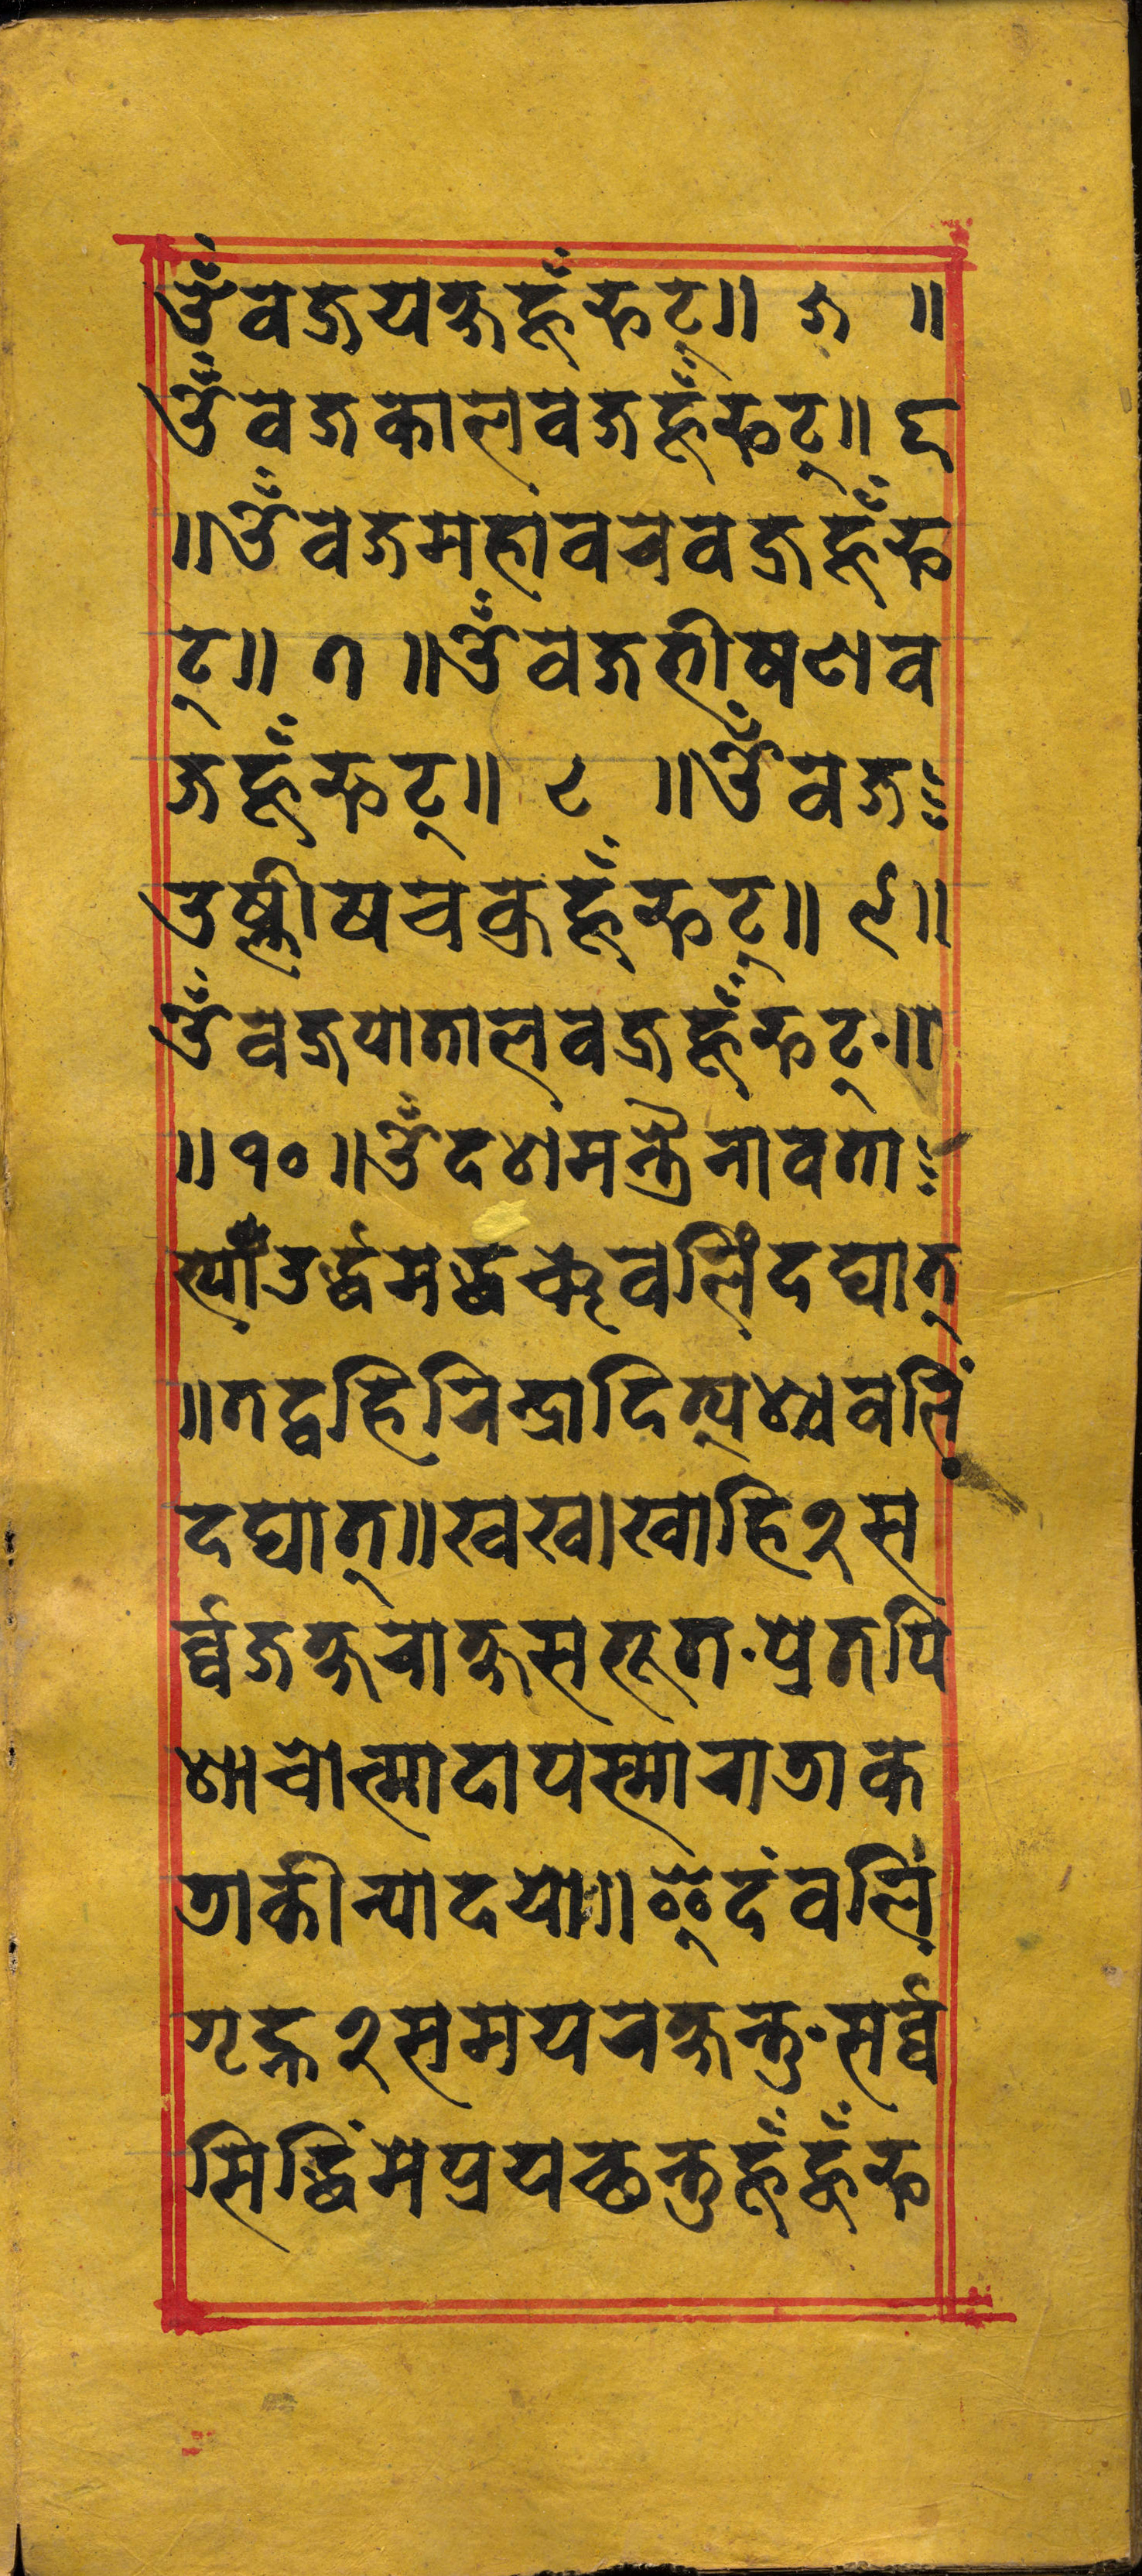 ॐवज्रयक्षहूँफट्॥ ५ ॥
ॐवज्रकालवज्रहूँफट्॥ ६
॥ॐवज्रमहावरवज्रहूँफ
ट्॥ ७ ॥ॐवज्रभीषणव
ज्रहूँफट्॥ ८ ॥ॐवज्र
उष्णीषचक्रहूँफट्॥ ९॥
ॐवज्रपातालवज्रहूँफट्॥
॥१०॥ॐदशमन्त्रैनावता
र्यांउर्द्धमद्धञ्चवलिंदद्यात्
॥तद्वहिरिन्द्रादित्यश्चवलिं
दद्यात्॥खख।खाहि२स
र्व्वजक्षराक्षसभूत॰प्रेतपि
शाचोत्मादापस्माराडाक
डाकीन्यादयो॥इदंवलिं
गृह्न२समयरक्षन्तु॰सर्व्व
सिद्धिंमेप्रयच्छन्तुहूँहूँफ